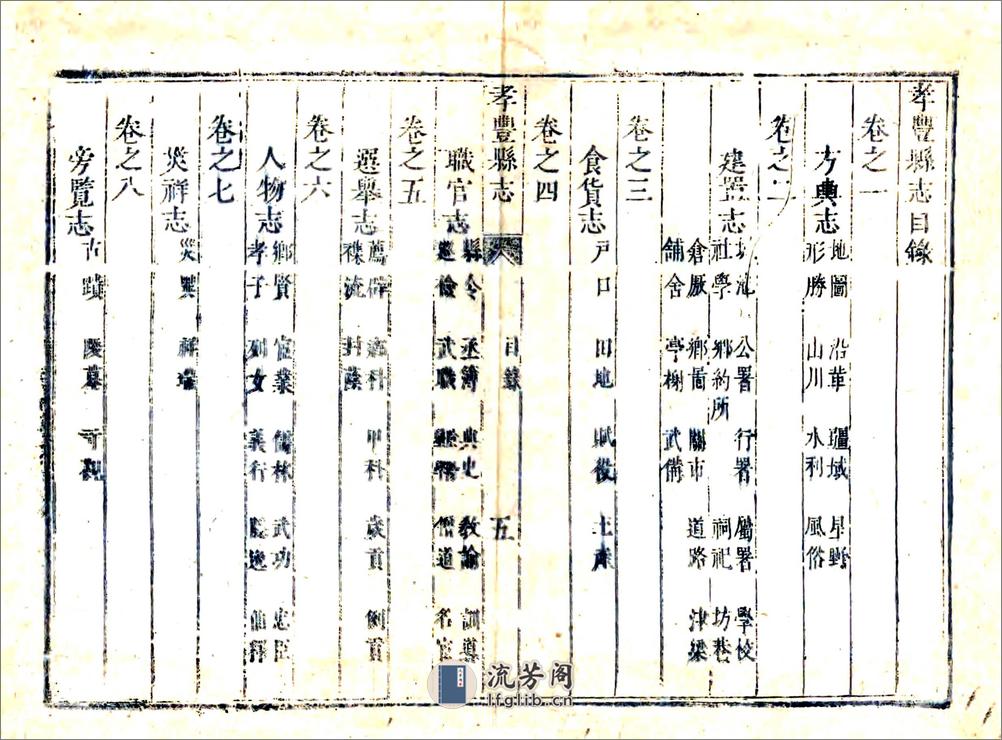 孝豐縣志目錄
卷之一
方輿志
地圖 沿革 疆域 星野
形勝 山川 水利 風俗
卷之二
建置志
城池 公署 行署 屬署 學校
社學 鄉約所 祠祀 坊巷
倉厫 鄉啚 關市 道路 津梁
舖舍 亭榭 武備
卷之三
食貨志
戸口 田地 賦役 土產
卷之四
孝豐縣志 目錄 五
職官志
縣令 丞簿 典史 教諭 訓導
巡檢 武職 僧道 名宦
卷之五
選舉志
薦辟 甲科 歲貢 例貢
襍流 封蔭
卷之六
人物志
鄉賢 宦業 儒林 武功 忠臣
孝子 列女 義行 隱逸 仙釋
卷之七
災祥志
災異 祥瑞
卷之八
旁覽志
古蹟 陵墓
流芳阁
lfglib.cn